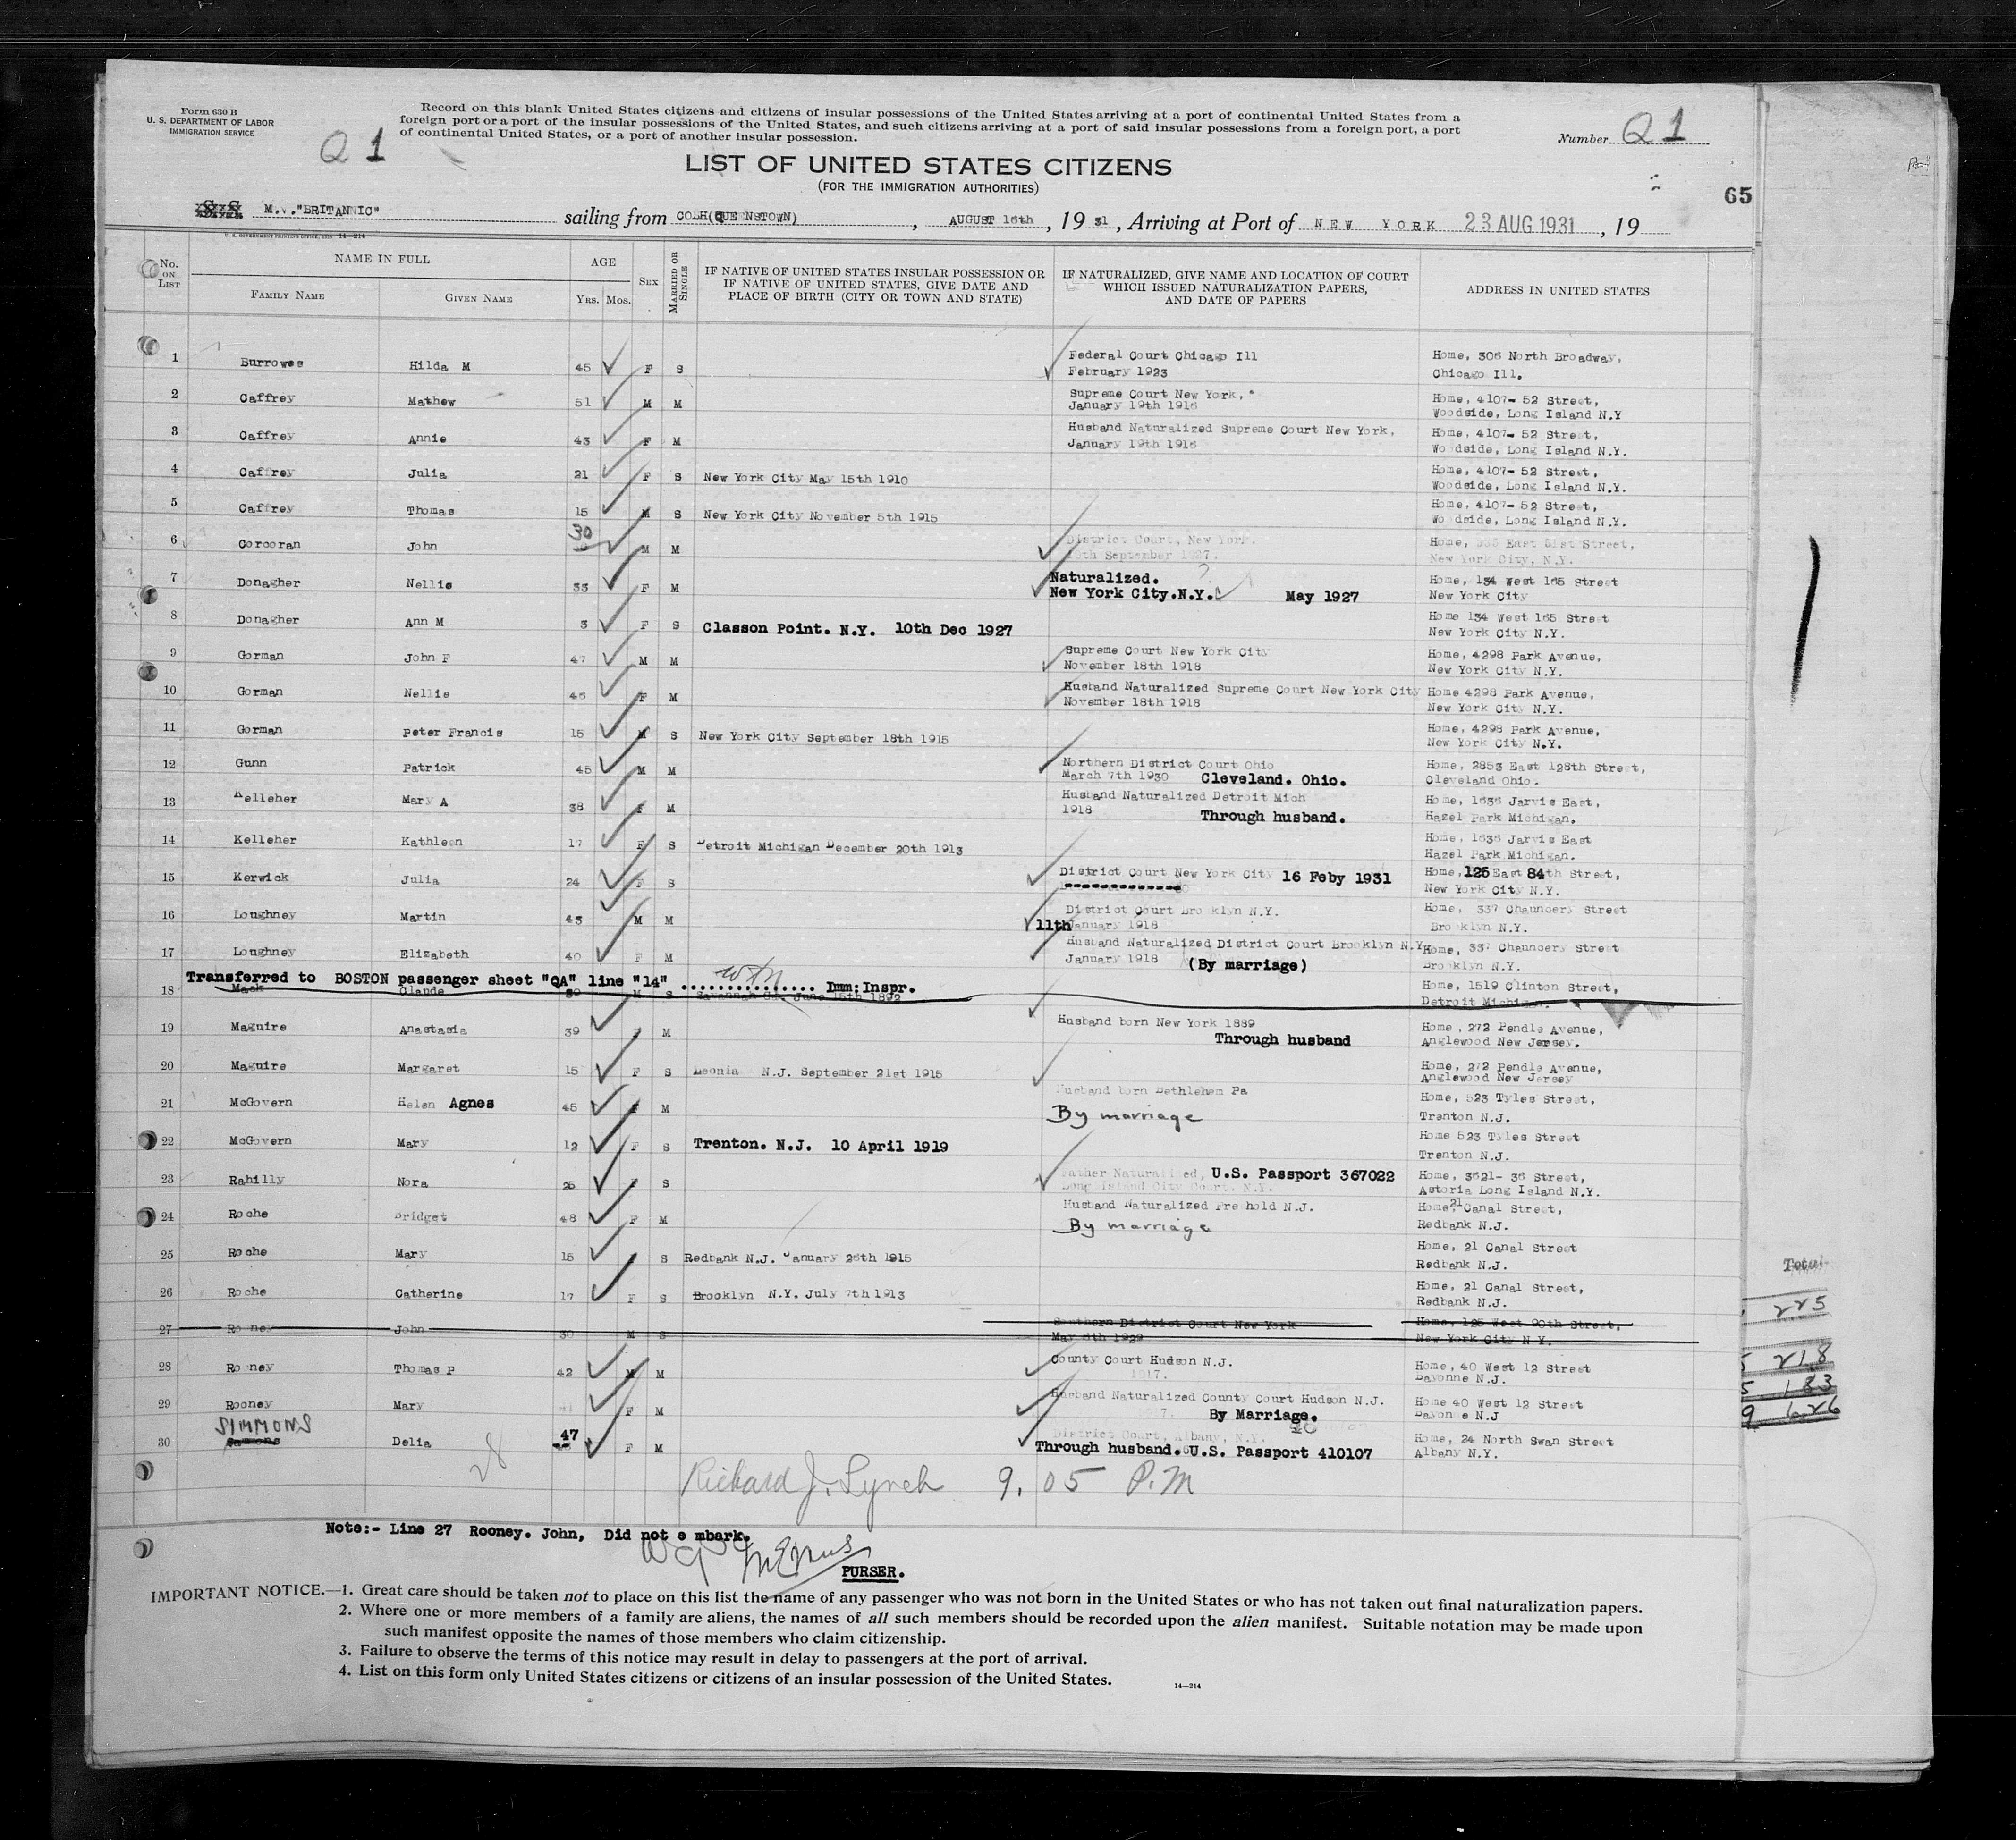 Form 630 B
U. S. DEPARTMENT OF LABOR
IMMIGRATION SERVICE
Q 1
Record on this blank United States citizens and citizens of insular possessions of the United States arriving at a port of continental United States from a
foreign port or a port of the insular possessions of the United States, and such citizens arriving at a port of said insular possessions from a foreign port, a port
of continental United States, or a port of another insular possession.
Number Q 1
LIST OF UNITED STATES CITIZENS
(FOR THE IMMIGRATION AUTHORITIES)
65
S S M.V."BRITANNIC" sailing from COBH(QUEENSTOWN), AUGUST 16th, 19 31, Arriving at Port of NEW YORK 23 AUG 1931, 19
U. S. GOVERNMENT PRINTING OFFICE 14—214
No. ON LIST
NAME IN FULL
FAMILY NAME
GIVEN NAME
AGE
YRS. MOS.
SEX
MARRIED OR SINGLE
IF NATIVE OF UNITED STATES INSULAR POSSESSION OR
IF NATIVE OF UNITED STATES, GIVE DATE AND
PLACE OF BIRTH (CITY OR TOWN AND STATE)
IF NATURALIZED, GIVE NAME AND LOCATION OF COURT
WHICH ISSUED NATURALIZATION PAPERS,
AND DATE OF PAPERS
ADDRESS IN UNITED STATES
1 Burrowes Hilda M 45 F S Federal Court Chicago Ill Home, 306 North Broadway,
February 1923 Chicago Ill.
2 Caffrey Mathew 51 M M Supreme Court New York, Home, 4107- 52 Street,
January 19th 1916 Woodside, Long Island N.Y
3 Caffrey Annie 43 F M Husband Naturalized Supreme Court New York, Home, 4107- 52 Street,
January 19th 1916 Woodside, Long Island N.Y.
4 Caffrey Julia 21 F S New York City May 15th 1910 Home, 4107- 52 Street,
Woodside, Long Island N.Y.
5 Caffrey Thomas 15 M S New York City November 5th 1915 Home, 4107- 52 Street,
Wo dside, Long Island N.Y.
6 Corcoran John 30 M M District Court, New York. Home, East 51st Street,
September 1927. New York City, N.Y.
7 Donagher Nellie 33 F M Naturalized. Home, 134 West 165 Street
New York City.N.Y. May 1927 New York City
8 Donagher Ann M 3 F S Classon Point. N.Y. 10th Dec 1927 Home 134 West 165 Street
New York City N.Y.
9 Gorman John F 47 M M Supreme Court New York City Home, 4298 Park Avenue,
November 18th 1918 New York City N.Y.
10 Gorman Nellie 46 F M Husband Naturalized Supreme Court New York City Home 4298 Park Avenue,
November 18th 1918 New York City N.Y.
11 Gorman Peter Francis 15 M S New York City September 18th 1915 Home, 4298 Park Avenue,
New York City N.Y.
12 Gunn Patrick 45 M M Northern District Court Ohio Home, 2853 East 128th Street,
March 7th 1930 Cleveland. Ohio. Cleveland Ohio.
13 Kelleher Mary A 38 F M Husband Naturalized Detroit Mich Home, 1636 Jarvis East,
1918 Through husband. Hazel Park Michigan.
14 Kelleher Kathleen 17 F S Detroit Michigan December 20th 1913 Home, 1636 Jarvis East
Hazel Park Michigan.
15 Kerwick Julia 24 F S District Court New York City 16 Feby 1931 Home, 125 East 84th Street,
New York City N.Y.
16 Loughney Martin 43 M M District Court Brooklyn N.Y. Home, 337 Chauncery Street
11th January 1918 Brooklyn N.Y.
17 Loughney Elizabeth 40 F M Husband Naturalized District Court Brooklyn N.Y Home, 337 Chauncery Street
January 1918 (By marriage) Brooklyn N.Y.
Transferred to BOSTON passenger sheet "QA" line "14" ................ Imm:Inspr.
18 Mack Claude 39 M S Savannah Ga. June 15th 1892 Home, 1519 Clinton Street,
Detroit Michigan.
19 Maguire Anastasia 39 F M Husband born New York 1889 Home, 272 Pendle Avenue,
Through husband Anglewood New Jersey.
20 Maguire Margaret 15 F S Leonia N.J. September 21st 1915 Home, 272 Pendle Avenue,
Anglewood New Jersey
21 McGovern Helen Agnes 45 F M Husband born Bethlehem Pa Home, 523 Tyles Street,
By marriage Trenton N.J.
22 McGovern Mary 12 F S Trenton. N.J. 10 April 1919 Home 523 Tyles Street
Trenton N.J.
23 Rahilly Nora 25 F S Father Naturalized, U.S. Passport 367022 Home, 3621- 36 Street,
Long Island City Court. N.Y. Astoria Long Island N.Y.
24 Roche Bridget 48 F M Husband Naturalized Freehold N.J. Home, 21 Canal Street,
By marriage Redbank N.J.
25 Roche Mary 15 F S Redbank N.J. January 26th 1915 Home, 21 Canal Street
Redbank N.J.
26 Roche Catherine 17 F S Brooklyn N.Y. July 7th 1913 Home, 21 Canal Street,
Redbank N.J.
27 Rooney John 30 M S Southern District Court New York Home, 125 West 90th Street,
May 6th 1929 New York City N Y.
28 Rooney Thomas P 42 M M County Court Hudson N.J. Home, 40 West 12 Street
1917. Bayonne N.J.
29 Rooney Mary 41 F M Husband Naturalized County Court Hudson N.J. Home 40 West 12 Street
By Marriage. Bayonne N.J
SIMMONS
30 Delia 47 F M District Court, Albany, N.Y. Home, 24 North Swan Street
Through husband. U.S. Passport 410107 Albany N.Y.
28
Richard J. Lynch 9.05 P.M
Note:- Line 27 Rooney. John, Did not e mbark.
PURSER.
IMPORTANT NOTICE.—1. Great care should be taken not to place on this list the name of any passenger who was not born in the United States or who has not taken out final naturalization papers.
2. Where one or more members of a family are aliens, the names of all such members should be recorded upon the alien manifest. Suitable notation may be made upon
such manifest opposite the names of those members who claim citizenship.
3. Failure to observe the terms of this notice may result in delay to passengers at the port of arrival.
4. List on this form only United States citizens or citizens of an insular possession of the United States.
14—214
Total
225
218
183
626